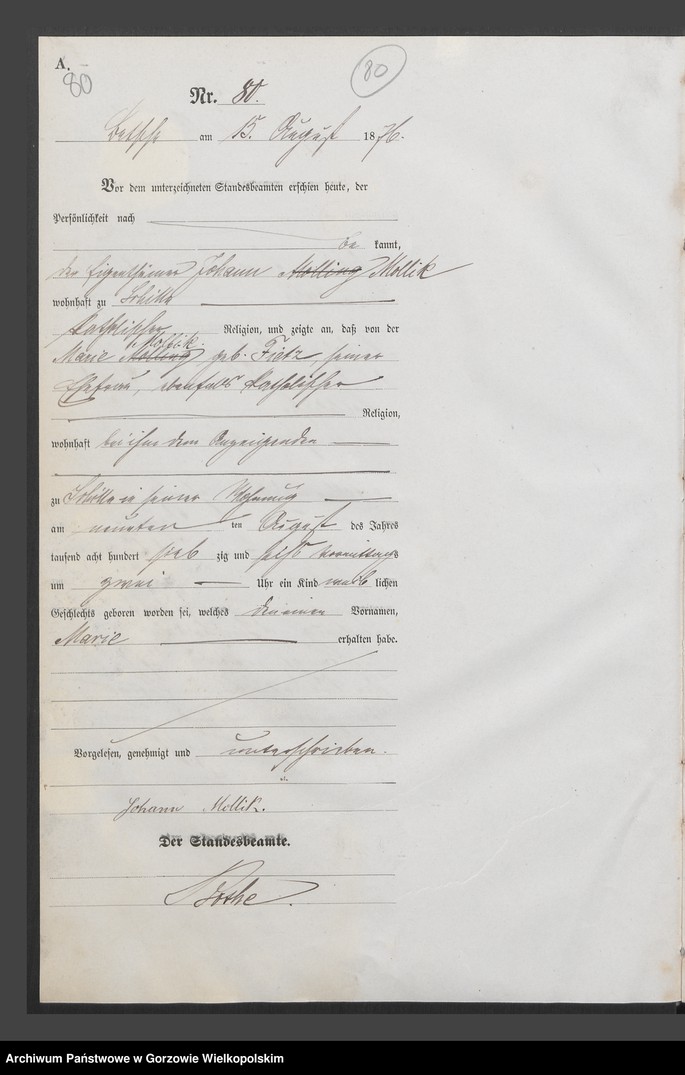 A.
80
80
Nr. 80.
Betsche am 15. August 1876.
Vor dem unterzeichneten Standesbeamten erschien heute, der
Persönlichkeit nach
be kannt,
der Eigenthümer Johann Molling Mollik
wohnhaft zu
katholischer Religion, und zeigte an, daß von der
Mollik
Marie Molling geb. Fietz, seiner
Ehefrau, ebenfalls katholischer
Religion,
wohnhaft bei ihm dem Anzeigenden
zu in seiner Wohnung
am neunten ten August des Jahres
tausend acht hundert sieb zig und sechs Vormittags
um zwei Uhr ein Kind weib lichen
Geschlechts geboren worden sei, welches den einen Vornamen,
Marie erhalten habe.
Vorgelesen, genehmigt und unterschrieben.
Johann Mollik.
Der Standesbeamte.
Bothe.
Archiwum Państwowe w Gorzowie Wielkopolskim